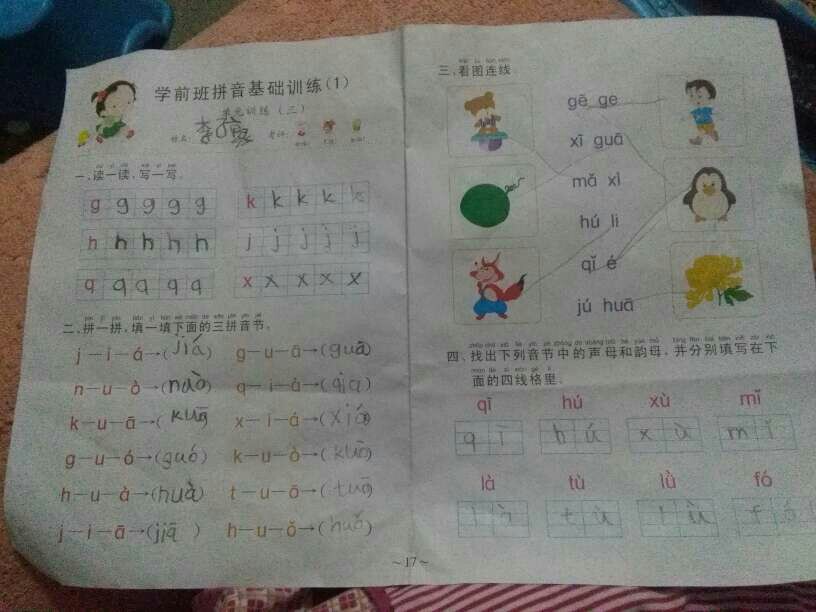 学前班拼音基础训练(1)
单元训练(三)
姓名: 李
一、读一读,写一写。
g g g g g
k k k k k
h h h h h
j j j j j
q q q q q
x x x x x
二、拼一拼,填一填下面的三拼音节。
j—i—á→(jiá)
g—u—ā→(guā)
n—u—ò→(nuò)
q—i—ā→(qia)
k—u—ā→(kuā)
x—i—á→(xiá)
g—u—ó→(guó)
k—u—ò→(kuò)
h—u—à→(huà)
t—u—ō→(tuō)
j—i—ā→(jiā)
h—u—ǒ→(huǒ)
~17~
三、看图连线
gē ge
xī guā
mǎ xì
hú li
qǐ é
jú huā
四、找出下列音节中的声母和韵母,并分别填写在下
面的四线格里。
qī hú xù mǐ
q ī h ú x ù m ǐ
là tù lǜ fó
l à t ù l ǜ f ó